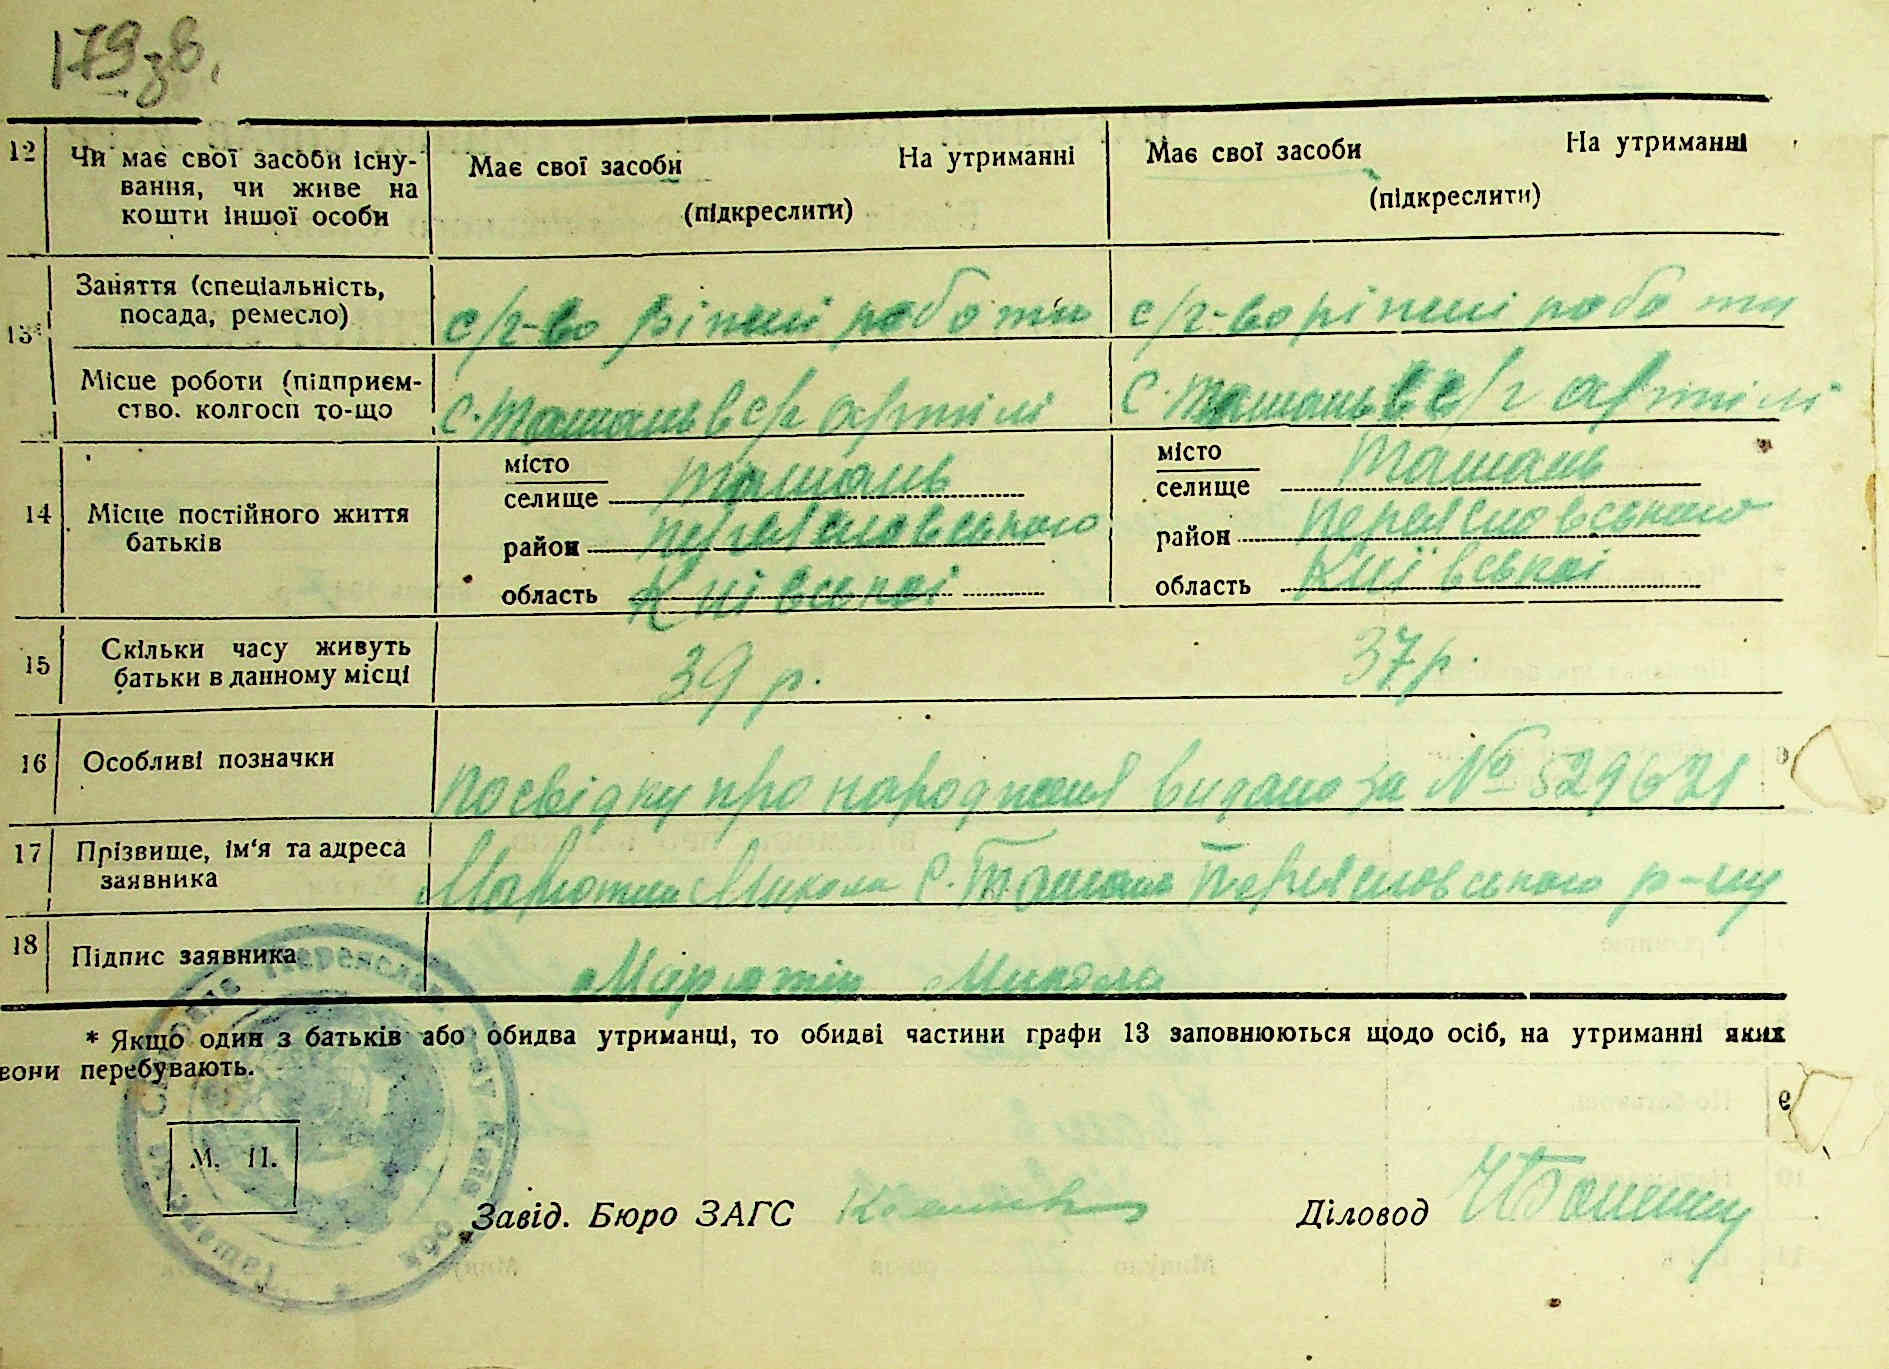 179зв.
12 Чи має свої засоби існу-
вання, чи живе на
кошти іншої особи
Має свої засоби На утриманні
(підкреслити)
Має свої засоби На утриманні
(підкреслити)
13* Заняття (спеціальність,
посада, ремесло)
с/г-во різні роботи
с/г-во різні роботи
Місце роботи (підприєм-
ство. колгосп то-що
с. Ташань в с/г артілі
с. Ташань в с/г артілі
14 Місце постійного життя
батьків
місто
селище Ташань
район Переяславського
область Київської
місто
селище Ташань
район Переяславського
область Київської
15 Скільки часу живуть
батьки в данному місці
39 р.
37 р.
16 Особливі позначки
посвідку про народження видано за № 529621
17 Прізвище, ім'я та адреса
заявника
Микола с. Ташань Переяславського р-ну
18 Підпис заявника
Микола
* Якщо один з батьків або обидва утриманці, то обидві частини графи 13 заповнюються щодо осіб, на утриманні яких
вони перебувають.
М. П.
Завід. Бюро ЗАГС
Діловод